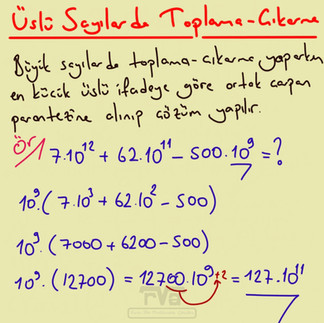 Üslü Sayılarda Toplama-Çıkarma
Büyük sayılarda toplama-çıkarma yaparken
en küçük üslü ifadeye göre ortak çarpan
parantezine alınıp çözüm yapılır.
Ör/ 7.10¹² + 62.10¹¹ - 500.10⁹ = ?
10⁹.(7.10³ + 62.10² - 500)
10⁹.(7000 + 6200 - 500)
10⁹.(12700) = 12700.10⁹⁺² = 127.10¹¹
rva